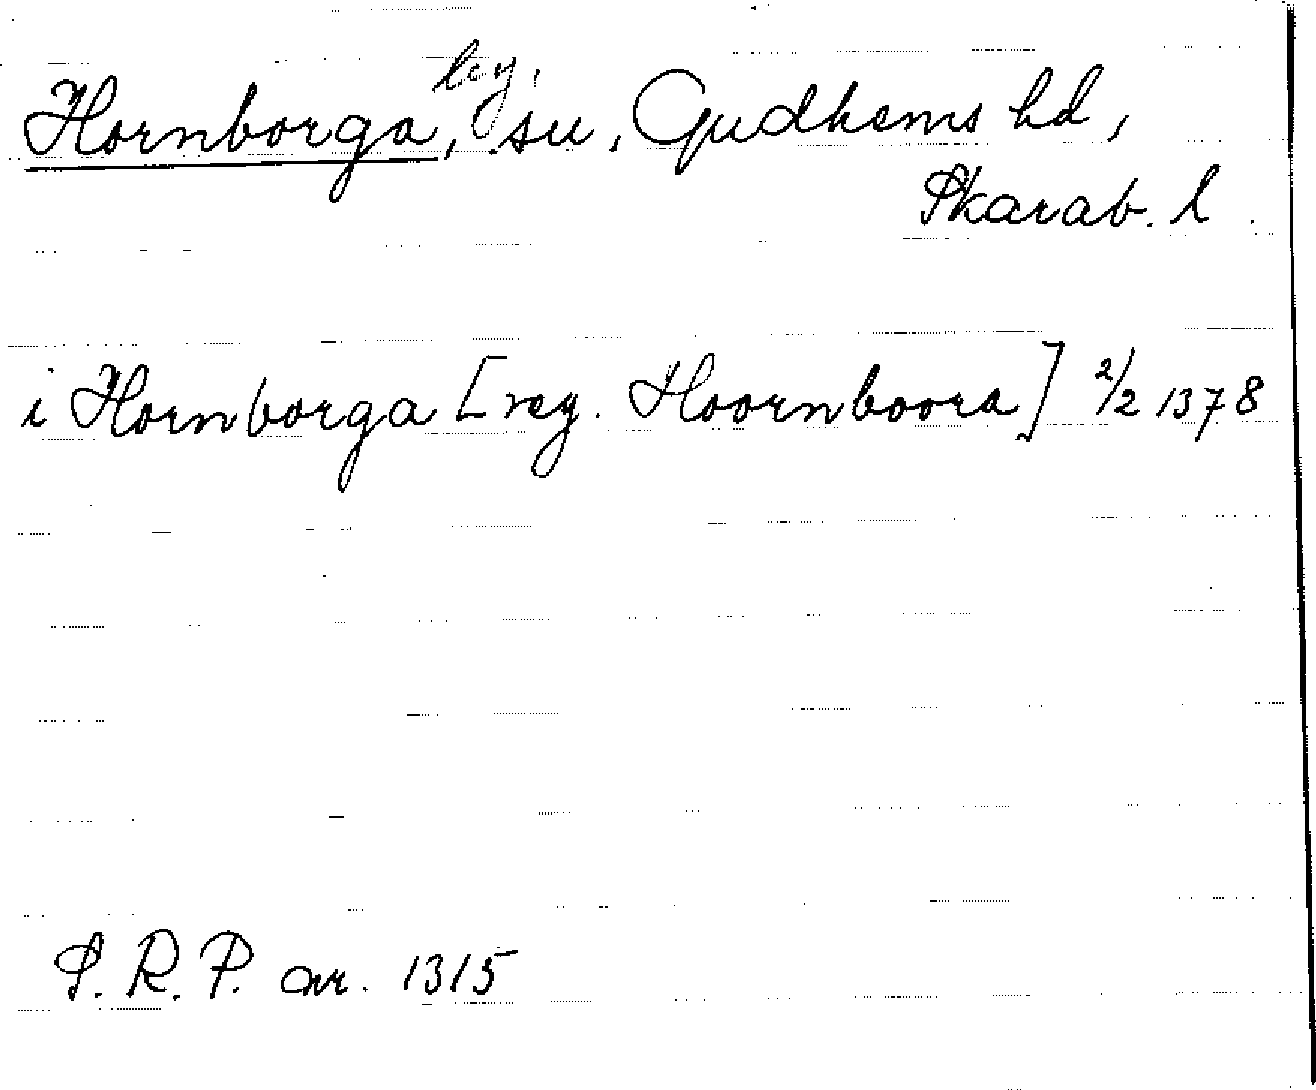 Hornborga, by, su, Gudhems hd,
Skarab. l.
i Hornborga [reg. Hoornboora] 2/2 1378
S. R. P. nr. 1315